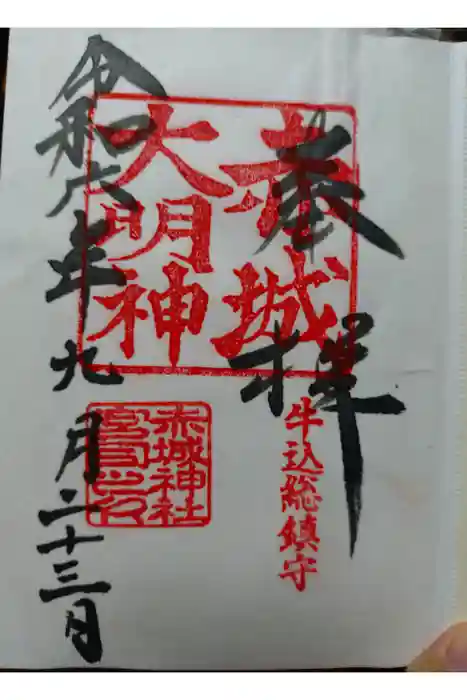 奉拝
赤城
大明神
牛込総鎮守
赤城神社
宮司之印
令和六年九月二十三日